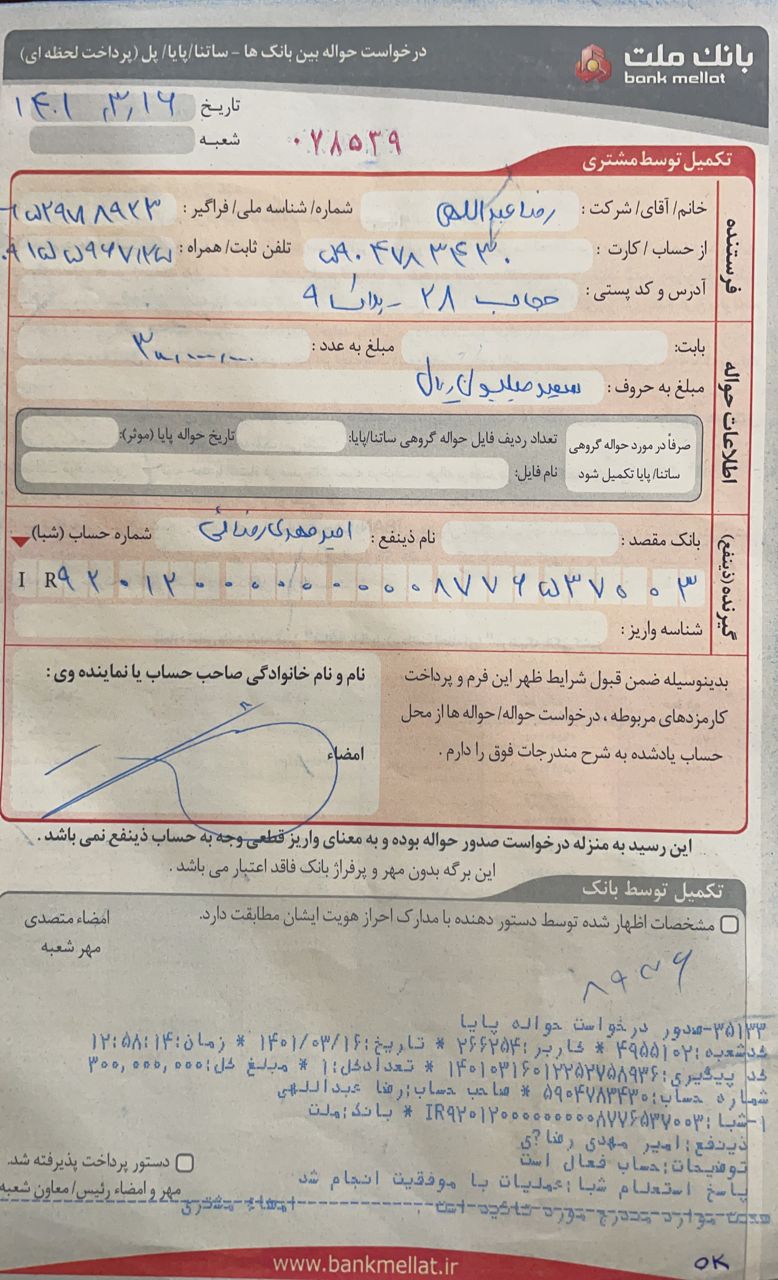 بانك ملت
bank mellat
درخواست حواله بین بانک ها - ساتنا/پایا/ پل (پرداخت لحظه ای)
تاریخ ۱۴۰۱,۳,۱۶
شعبه
۰۷۸۵۳۹
تکمیل توسط مشتری
فرستنده
خانم/ آقای/ شرکت: رضا عبداللهی شماره/ شناسه ملی/ فراگیر:
از حساب / کارت: ۵۹۰۴۷۸۳۴۳۰ تلفن ثابت/ همراه:
آدرس و کد پستی: حجاب ۲۸ - پلاک ۹
اطلاعات حواله
بابت: مبلغ به عدد: ۳۰۰,۰۰۰,۰۰۰
مبلغ به حروف: سیصد میلیون ریال
صرفاً در مورد حواله گروهی ساتنا/ پایا تکمیل شود
تعداد ردیف فایل حواله گروهی ساتنا/پایا: تاریخ حواله پایا (موثر):
نام فایل:
گیرنده (ذینفع)
بانک مقصد: نام ذینفع: امیر مهدی رضائی شماره حساب (شبا)
IR۹۲۰۱۲۰۰۰۰۰۰۰۰۰۰۸۷۷۶۵۳۷۰۰۳
شناسه واریز:
بدینوسیله ضمن قبول شرایط ظهر این فرم و پرداخت
کارمزدهای مربوطه، درخواست حواله/ حواله ها از محل
حساب یادشده به شرح مندرجات فوق را دارم.
نام و نام خانوادگی صاحب حساب یا نماینده وی:
امضاء
این رسید به منزله درخواست صدور حواله بوده و به معنای واریز قطعی وجه به حساب ذینفع نمی باشد.
این برگه بدون مهر و پرفراژ بانک فاقد اعتبار می باشد.
تکمیل توسط بانک
مشخصات اظهار شده توسط دستور دهنده با مدارک احراز هویت ایشان مطابقت دارد.
امضاء متصدی
مهر شعبه
۳۵۱۳۳-صدور درخواست حواله پایا
کدشعبه:۴۹۵۵۱۰۲ * کاربر:۲۶۶۲۵۴ * تاریخ:۱۴۰۱/۰۳/۱۶ * زمان:۱۲:۵۸:۱۴
کد پیگیری:۱۴۰۱۰۳۱۶۰۱۲۲۵۲۷۵۸۹۳۶ * تعدادکل:۱ * مبلغ کل:۳۰۰,۰۰۰,۰۰۰
شماره حساب:۵۹۰۴۷۸۳۴۳۰ * صاحب حساب:رضا عبداللهی
۱-شبا:IR۹۲۰۱۲۰۰۰۰۰۰۰۰۰۰۸۷۷۶۵۳۷۰۰۳ * بانک:ملت
ذینفع:امیر مهدی رضا?ی
توضیحات:حساب فعال است
پاسخ استعلام شبا:عملیات با موفقیت انجام شد
صحت موارد مندرج مورد تائید است. امضاء مشتری
دستور پرداخت پذیرفته شد.
مهر و امضاء رئیس/ معاون شعبه
OK
www.bankmellat.ir